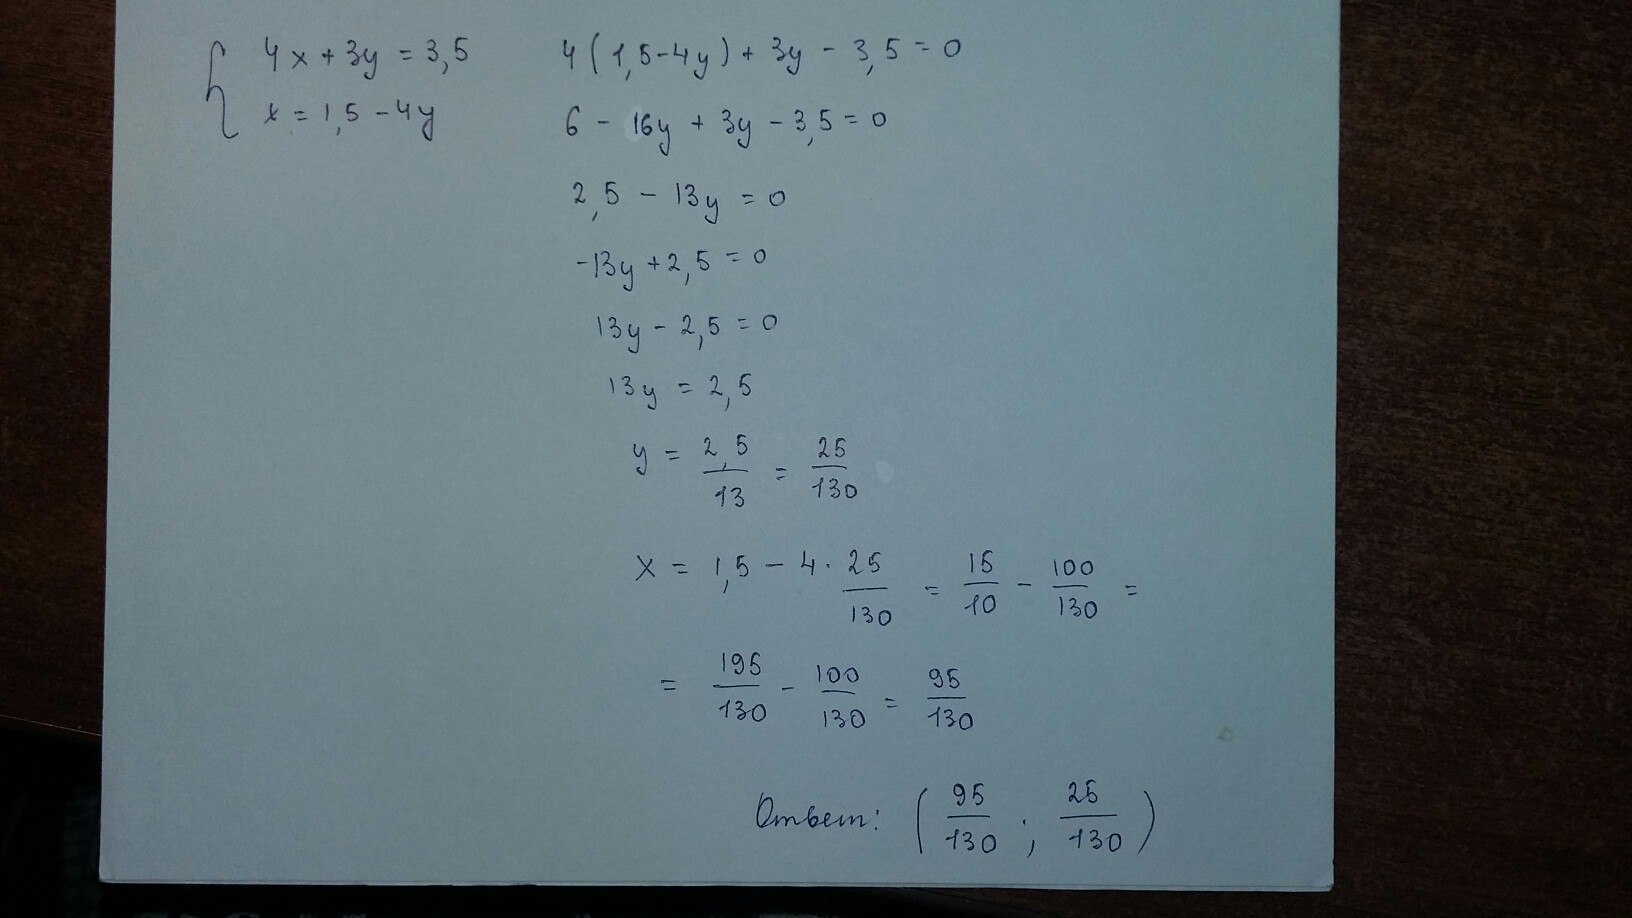 4x + 3y = 3,5
x = 1,5 - 4y
4(1,5-4y) + 3y - 3,5 = 0
6 - 16y + 3y - 3,5 = 0
2,5 - 13y = 0
-13y + 2,5 = 0
13y - 2,5 = 0
13y = 2,5
y = 2,5/13 = 25/130
x = 1,5 - 4 · 25/130 = 15/10 - 100/130 =
= 195/130 - 100/130 = 95/130
Ответ: (95/130 ; 25/130)